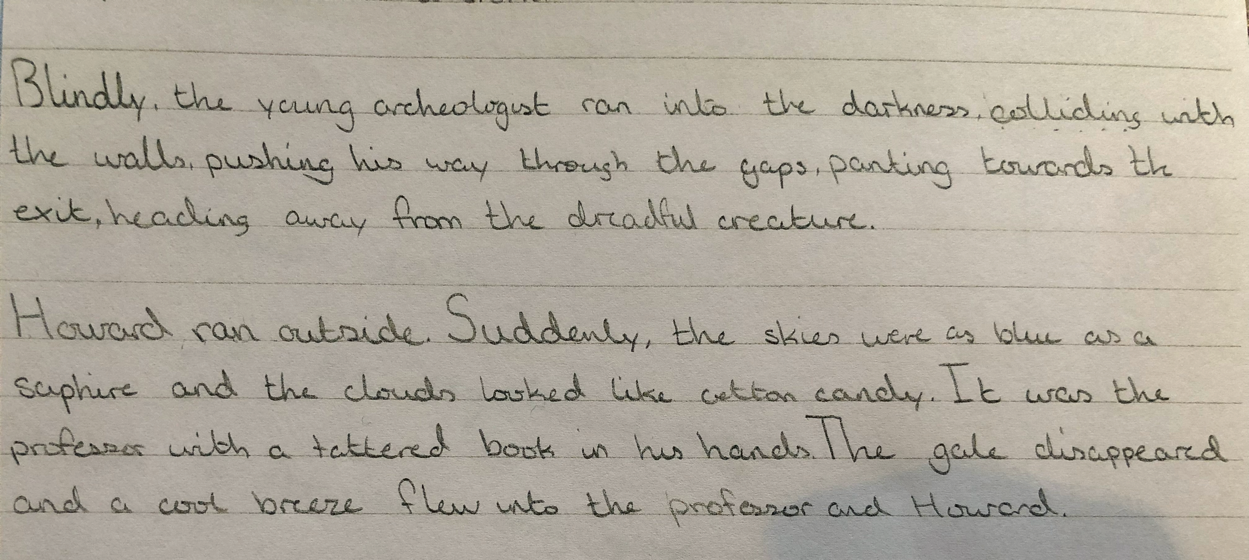 Blindly, the young archeologist ran into the darkness, colliding with
the walls, pushing his way through the gaps, panting towards the
exit, heading away from the dreadful creature.
Howard ran outside. Suddenly, the skies were as blue as a
saphire and the clouds looked like cotton candy. It was the
professor with a tattered book in his hands. The gale disappeared
and a cool breeze flew into the professor and Howard.